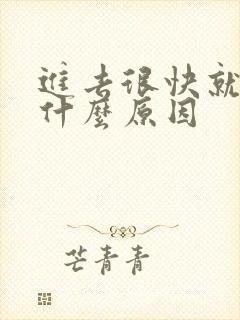 進去很快就
什麼原因
芒青青